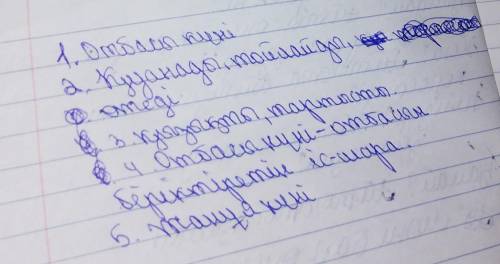 1. Отбасы күні
2. Қуанады, тойлайды,
өтеді
3. қызықты, тартысты.
4 Отбасы күні-отбасын
беріктіретін іс-шара.
5. Жанұя күні